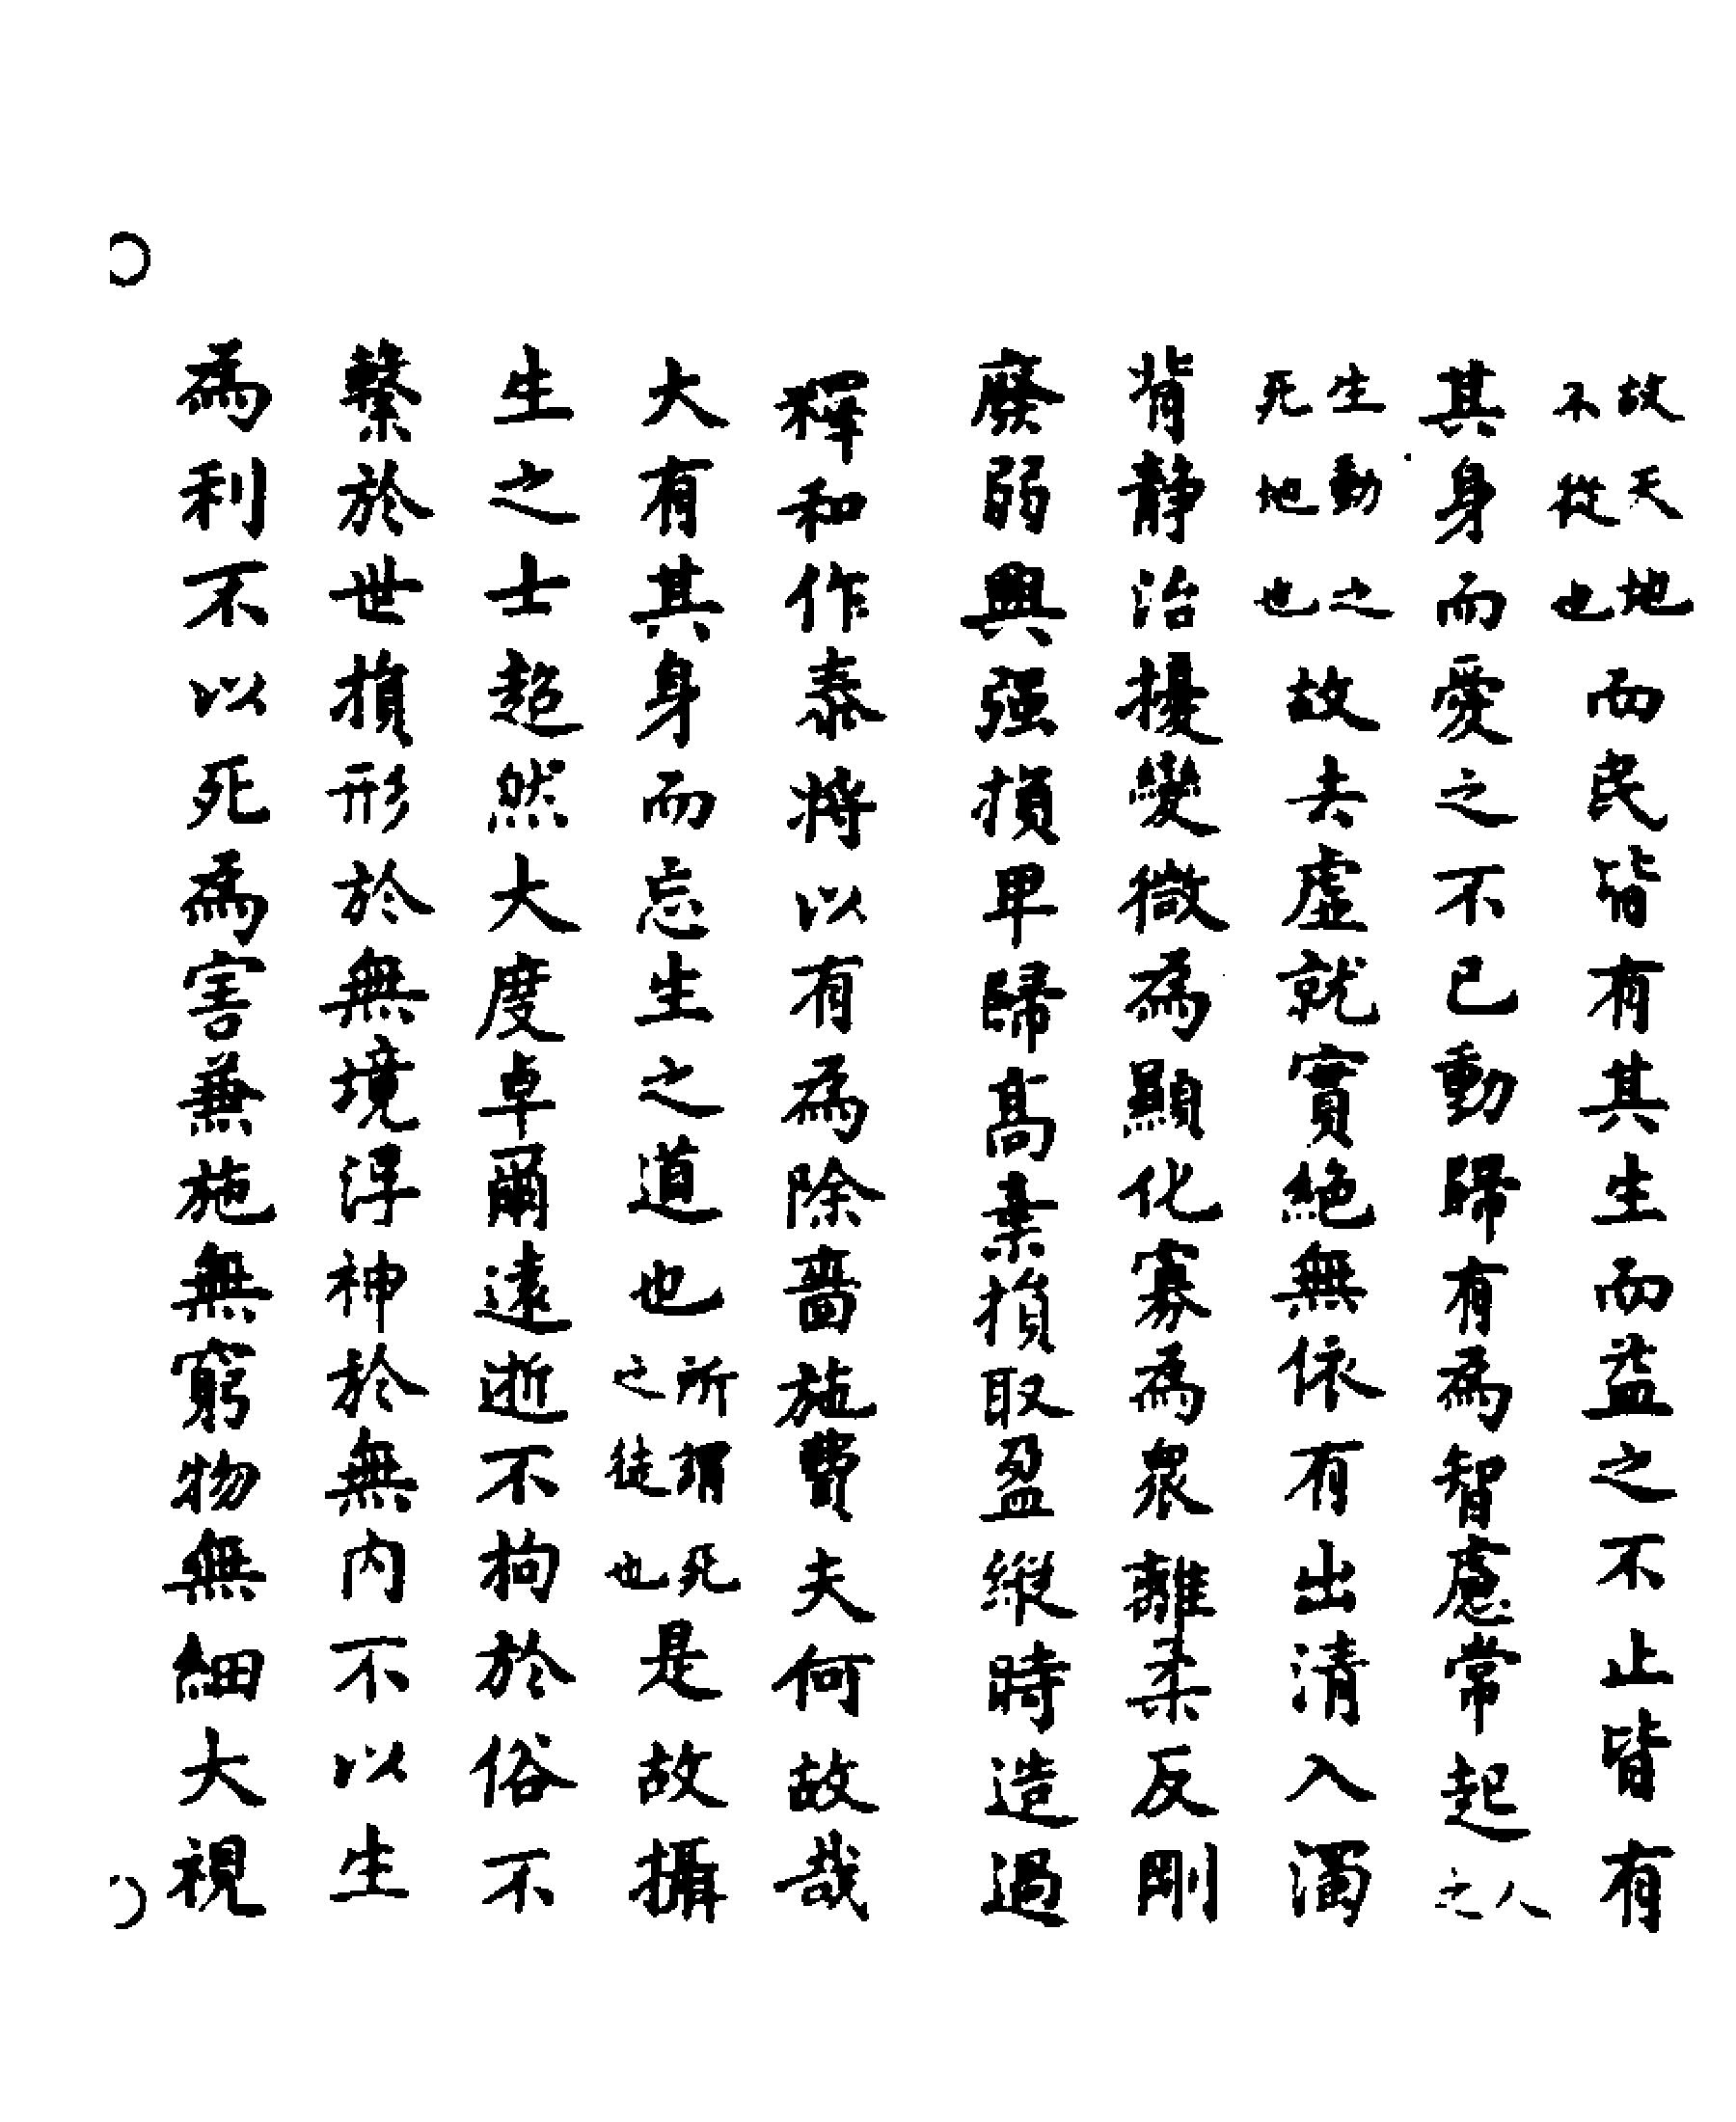 故天地不從也而民皆有其生而益之不止皆有
其身而愛之不已動歸有為智慮常起人之
生動之死地也故去虛就實絕無依有出清入濁
背静治擾變微為顯化寡為衆離柔反剛
廢弱興强損卑歸髙棄損取盈縱時造過
釋和作泰將以有為除嗇施費夫何故哉
大有其身而忘生之道也所謂死之徒也是故攝
生之士超然大度卓爾遠逝不拘於俗不
繫於世損形於無境浮神於無内不以生
為利不以死為害兼施無窮物無細大視